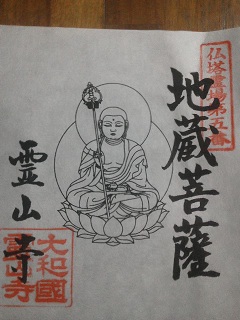 仏塔霊場第五番
地蔵菩薩
霊山寺
大和國
霊山寺